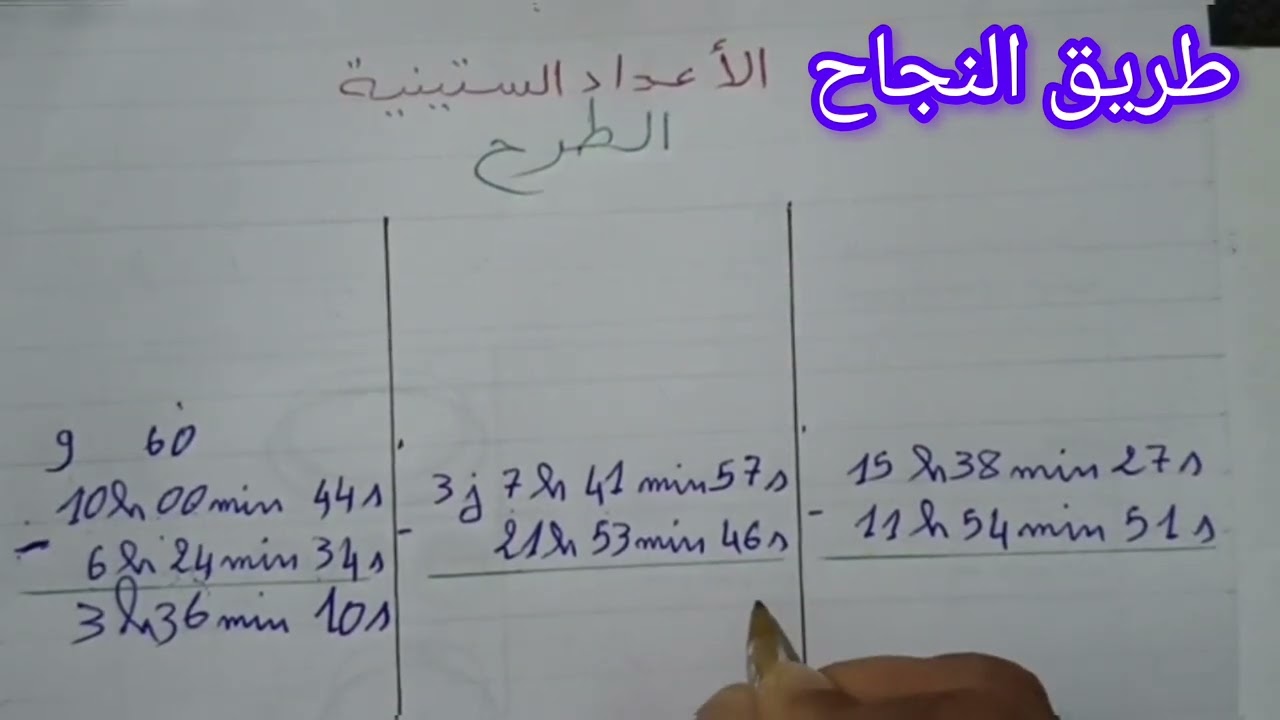 طريق النجاح
الأعداد الستينية
الطرح
9 60
10h 00 min 44s
- 6h 24 min 34s
3h 36 min 10s
3j 7h 41 min 57s
- 21h 53 min 46s
15h 38 min 27s
- 11h 54 min 51s